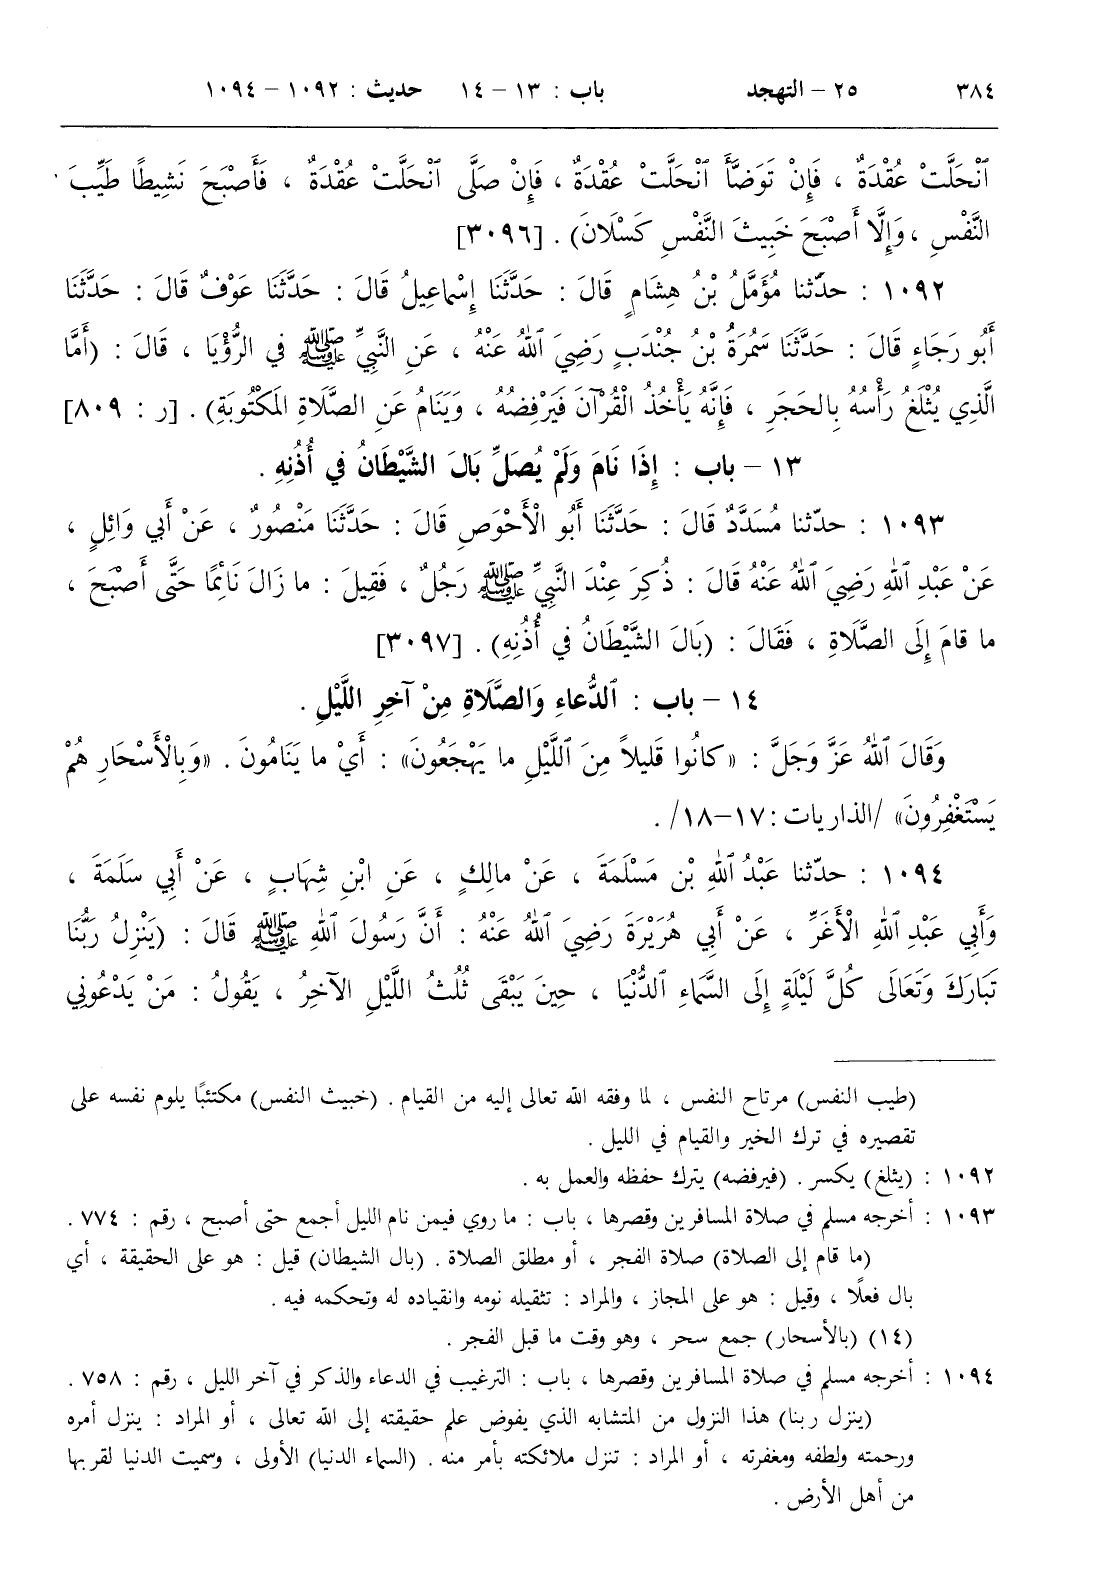 ٣٨٤ ٢٥ – التهجد باب : ١٣ – ١٤ حديث : ١٠٩٢ – ١٠٩٤
ٱنْحَلَّتْ عُقْدَةٌ ، فَإِنْ تَوَضَّأَ ٱنْحَلَّتْ عُقْدَةٌ ، فَإِنْ صَلَّى ٱنْحَلَّتْ عُقْدَةٌ ، فَأَصْبَحَ نَشِيطًا طَيِّبَ
النَّفْسِ ، وَإِلَّا أَصْبَحَ خَبِيثَ النَّفْسِ كَسْلَانَ) . [٣٠٩٦]
١٠٩٢ : حدّثنا مُؤَمَّلُ بْنُ هِشَامٍ قَالَ : حَدَّثَنَا إِسْمَاعِيلُ قَالَ : حَدَّثَنَا عَوْفٌ قَالَ : حَدَّثَنَا
أَبُو رَجَاءٍ قَالَ : حَدَّثَنَا سَمُرَةُ بْنُ جُنْدَبٍ رَضِيَ ٱللهُ عَنْهُ ، عَنِ النَّبِيِّ ﷺ في الرُّؤْيَا ، قَالَ : (أَمَّا
الَّذِي يُثْلَغُ رَأْسُهُ بِالحَجَرِ ، فَإِنَّهُ يَأْخُذُ الْقُرْآنَ فَيَرْفِضُهُ ، وَيَنَامُ عَنِ الصَّلَاةِ المَكْتُوبَةِ) . [ر : ٨٠٩]
١٣ – باب : إِذَا نَامَ وَلَمْ يُصَلِّ بَالَ الشَّيْطَانُ في أُذُنِهِ .
١٠٩٣ : حدّثنا مُسَدَّدٌ قَالَ : حَدَّثَنَا أَبُو الْأَحْوَصِ قَالَ : حَدَّثَنَا مَنْصُورٌ ، عَنْ أَبي وَائِلٍ ،
عَنْ عَبْدِ ٱللهِ رَضِيَ ٱللهُ عَنْهُ قَالَ : ذُكِرَ عِنْدَ النَّبِيِّ ﷺ رَجُلٌ ، فَقِيلَ : ما زَالَ نَائِمًا حَتَّى أَصْبَحَ ،
ما قامَ إِلَى الصَّلَاةِ ، فَقَالَ : (بَالَ الشَّيْطَانُ في أُذُنِهِ) . [٣٠٩٧]
١٤ – باب : ٱلدُّعاءِ وَالصَّلَاةِ مِنْ آخِرِ اللَّيْلِ .
وَقَالَ ٱللهُ عَزَّ وَجَلَّ : «كانُوا قَلِيلاً مِنَ ٱللَّيْلِ ما يَهْجَعُونَ» : أَيْ ما يَنَامُونَ . «وَبِالْأَسْحَارِ هُمْ
يَسْتَغْفِرُونَ» /الذاريات : ١٧–١٨/ .
١٠٩٤ : حدّثنا عَبْدُ ٱللهِ بْن مَسْلَمَةَ ، عَنْ مالِكٍ ، عَنِ ابْنِ شِهَابٍ ، عَنْ أَبِي سَلَمَةَ ،
وَأَبِي عَبْدِ ٱللهِ الْأَغَرِّ ، عَنْ أَبِي هُرَيْرَةَ رَضِيَ ٱللهُ عَنْهُ : أَنَّ رَسُولَ ٱللهِ ﷺ قَالَ : (يَنْزِلُ رَبُّنَا
تَبَارَكَ وَتَعَالَى كُلَّ لَيْلَةٍ إِلَى السَّمَاءِ ٱلدُّنْيَا ، حِينَ يَبْقَى ثُلُثُ اللَّيْلِ الآخِرُ ، يَقُولُ : مَنْ يَدْعُونِي
(طيب النفس) مرتاح النفس ، لما وفقه الله تعالى إليه من القيام . (خبيث النفس) مكتئبًا يلوم نفسه على
تقصيره في ترك الخير والقيام في الليل .
١٠٩٢ : (يثلغ) يكسر . (فيرفضه) يترك حفظه والعمل به .
١٠٩٣ : أخرجه مسلم في صلاة المسافرين وقصرها ، باب : ما روي فيمن نام الليل أجمع حتى أصبح ، رقم : ٧٧٤ .
(ما قام إلى الصلاة) صلاة الفجر ، أو مطلق الصلاة . (بال الشيطان) قيل : هو على الحقيقة ، أي
بال فعلًا ، وقيل : هو على المجاز ، والمراد : تثقيله نومه وانقياده له وتحكمه فيه .
(١٤) (بالأسحار) جمع سحر ، وهو وقت ما قبل الفجر .
١٠٩٤ : أخرجه مسلم في صلاة المسافرين وقصرها ، باب : الترغيب في الدعاء والذكر في آخر الليل ، رقم : ٧٥٨ .
(ينزل ربنا) هذا النزول من المتشابه الذي يفوض علم حقيقته إلى الله تعالى ، أو المراد : ينزل أمره
ورحمته ولطفه ومغفرته ، أو المراد : تنزل ملائكته بأمر منه . (السماء الدنيا) الأولى ، وسميت الدنيا لقربها
من أهل الأرض .